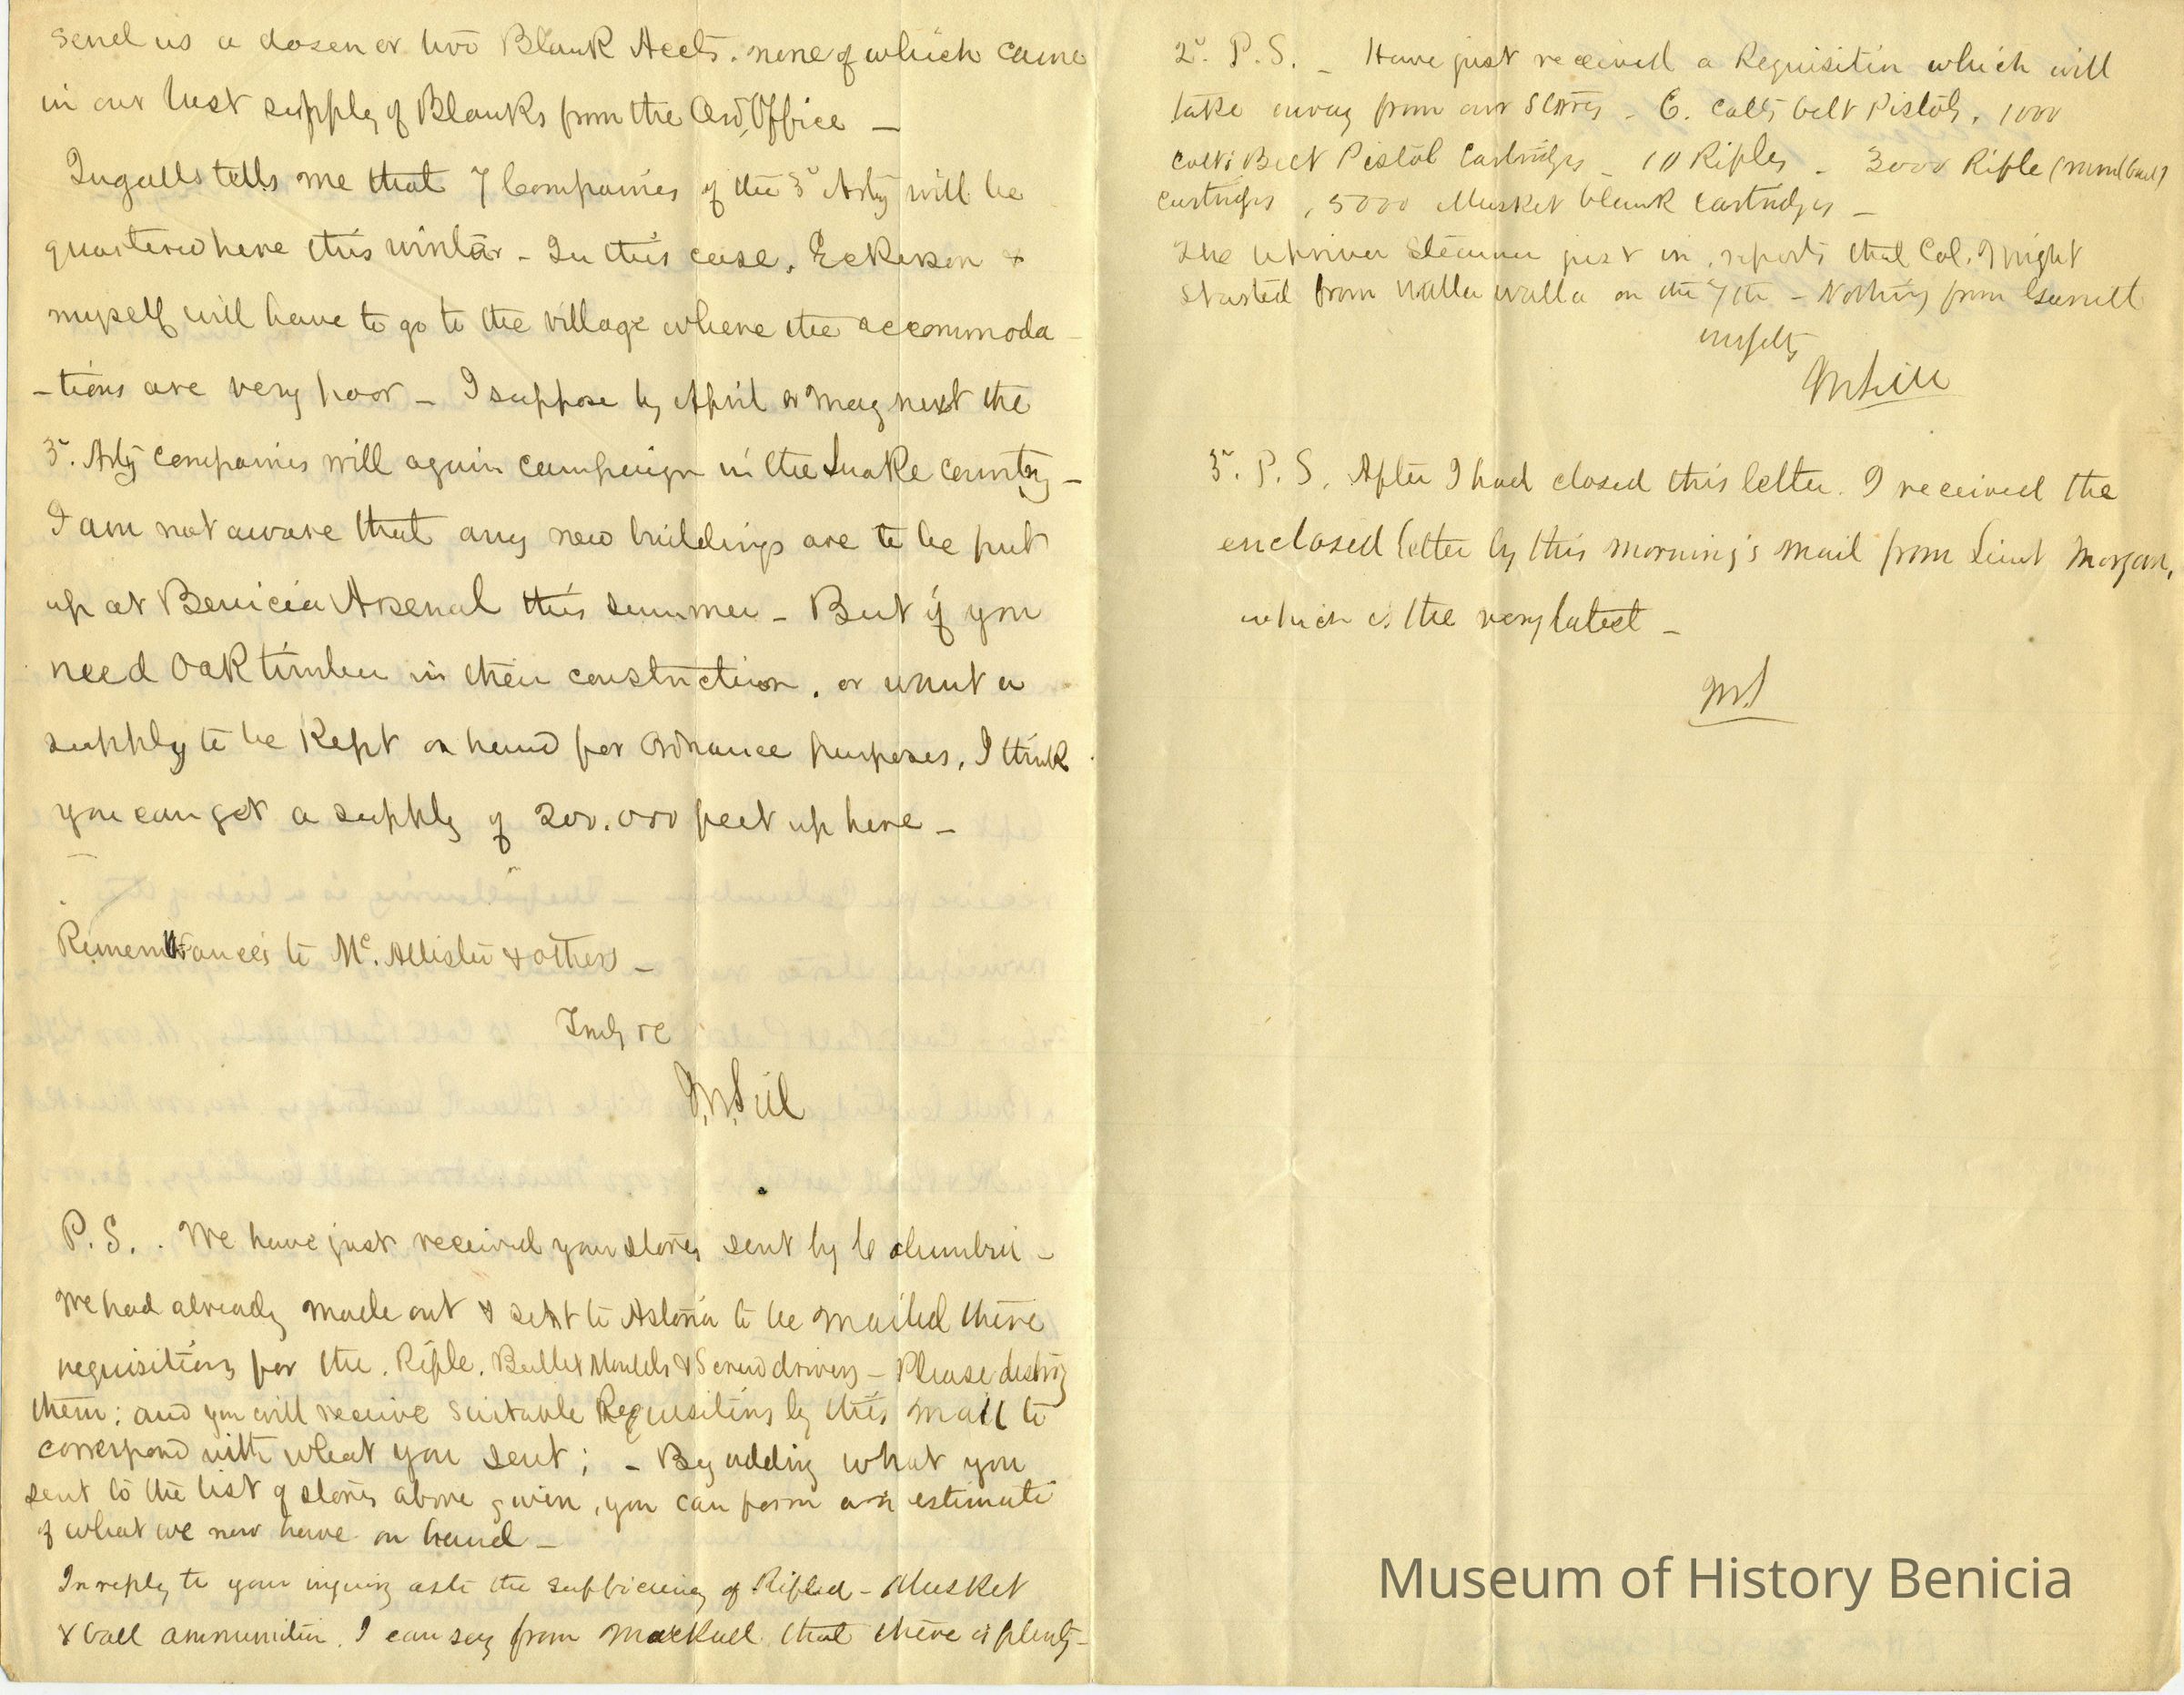 send us a dozen or two Blank Accts. none of which came
in our last supply of Blanks from the Ord. Office —
Ingalls tells me that 7 Companies of the 3d Arty will be
quartered here this winter - In this case, Eckerson &
myself will have to go to the village where the accommoda
-tions are very poor - I suppose by April or May next the
3d. Arty companies will again campaign in the Snake country -
I am not aware that any new buildings are to be put
up at Benicia Arsenal this summer - But if you
need Oak timber in their construction, or want a
supply to be Kept on hand for Ordnance purposes, I think
you can get a supply of 200.000 feet up here -
Remembrances to Mc.Allister & others -
Truly
P.S. . We have just received your stores sent by Columbia -
We had already made out & sent to Astoria to be mailed there
requisitions for the Rifle, Bullet Moulds & Screwdrivers - Please destroy
them; and you will receive suitable Requisitions by this mail to
correspond with what you sent; - By adding what you
sent to the list of stores above given, you can form an estimate
of what we now have on hand -
In reply to your inquiry as to the sufficiency of Rifled - Musket
& ball ammunition, I can say from Mackall that there is plenty -
2d. P.S. - Have just received a Requisition which will
take away from our Stores - 6. Colts belt Pistols, 1000
Colts Belt Pistol Cartridges - 10 Rifles - 3000 Rifle (round ball)
Cartridges, 5000 Musket blank cartridges -
The upriver Steamer just in, reports that Col. Wright
started from Walla walla on the 7th - Nothing from Garnett
3d. P.S. After I had closed this letter. I received the
enclosed letter by this morning's mail from Lieut Morgan,
which is the very latest -
Museum of History Benicia